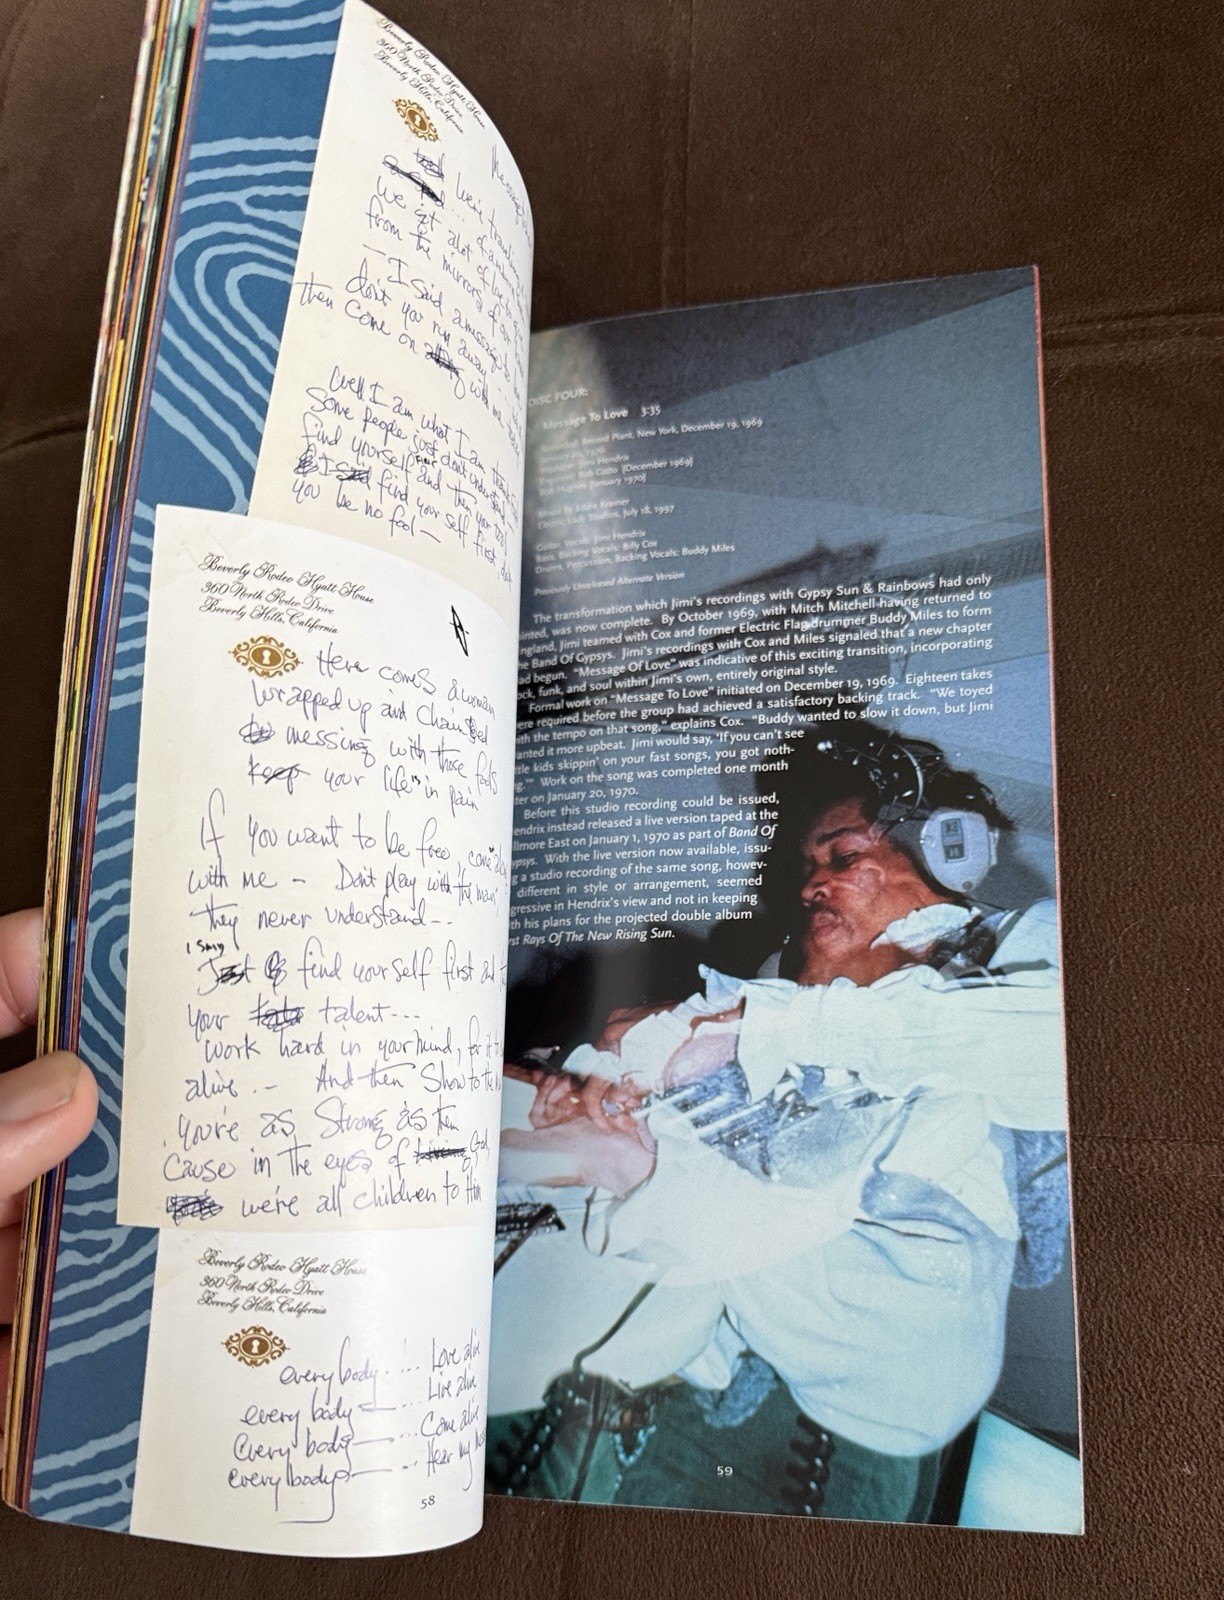 Beverly Rodeo Hyatt House
360 North Rodeo Drive
Beverly Hills, California
We're traveling
of a
we get alot of love to
from the mirrors of our
— I said a message to
don't you run away --
then come on with me
Well I am what I am
Some people just don't understand
find yourself and then your
find your self first,
you be no fool —
Beverly Rodeo Hyatt House
360 North Rodeo Drive
Beverly Hills, California
Here comes a woman
wrapped up and chained
messing with those fools
keep your life in pain
If you want to be free, come
with me — Don't play with the man,
they never understand --
I say
Just find your self first and
your talent ---
work hard in your mind, for it
alive. - And then Show to the
you're as Strong as them
Cause in the eyes of God
we're all children to Him
Beverly Rodeo Hyatt House
360 North Rodeo Drive
Beverly Hills, California
every body .... Love alive
every body — ... Live alive
Every body — ... Come alive
every body — ... Hear my
58
DISC FOUR:
Message To Love 3:35
Record Plant, New York, December 19, 1969
1970
Jimi Hendrix
[December 1969]
[January 1970]
Mixed By Eddie Kramer
Electric Lady Studios, July 18, 1997
Guitar, Vocals: Jimi Hendrix
Bass, Backing Vocals: Billy Cox
Drums, Percussion, Backing Vocals: Buddy Miles
Previously Unreleased Alternate Version
The transformation which Jimi's recordings with Gypsy Sun & Rainbows had only
inted, was now complete. By October 1969, with Mitch Mitchell having returned to
ngland, Jimi teamed with Cox and former Electric Flag drummer Buddy Miles to form
he Band Of Gypsys. Jimi's recordings with Cox and Miles signaled that a new chapter
ad begun. "Message Of Love" was indicative of this exciting transition, incorporating
ock, funk, and soul within Jimi's own, entirely original style.
Formal work on "Message To Love" initiated on December 19, 1969. Eighteen takes
ere required before the group had achieved a satisfactory backing track. "We toyed
ith the tempo on that song," explains Cox. "Buddy wanted to slow it down, but Jimi
anted it more upbeat. Jimi would say, 'If you can't see
tle kids skippin' on your fast songs, you got noth-
g.'" Work on the song was completed one month
ter on January 20, 1970.
Before this studio recording could be issued,
endrix instead released a live version taped at the
llmore East on January 1, 1970 as part of Band Of
ypsys. With the live version now available, issu-
g a studio recording of the same song, howev-
different in style or arrangement, seemed
gressive in Hendrix's view and not in keeping
ith his plans for the projected double album
rst Rays Of The New Rising Sun.
59